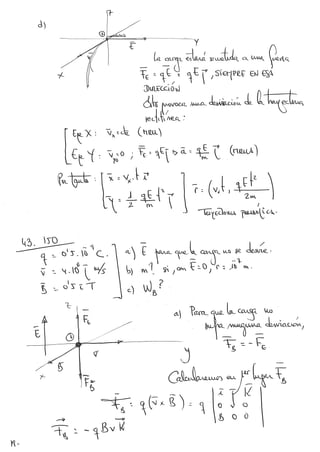 d)
z
E
Y
X
La carga estará sometida a una fuerza
F_E = qE = qE j, SIEMPRE EN ESA
DIRECCIÓN
Esto provoca una desviación de la trayectoria
rectilínea:
Eje X: v_x = cte (MRU)
Eje Y: v_y0 = 0; F_E = qE j → a = qE/m j (MRUA)
Por tanto: x = v_x·t i
y = 1/2 qE/m t² j
r = (v_x t, qEt²/2m)
Trayectoria parabólica.
43. 150
q = 0'5·10 C.
v = 4·10⁶ j m/s
B = 0'5 i T
a) E para que la carga no se desvíe.
b) m? si, con E = 0, r = 10 m.
c) W_B?
z
F_E
E
v
y
x
B
F_B
a) Para que la carga no
sufra ninguna desviación,
F_B = -F_E
Calcularemos en 1er lugar F_B
F_B = q(v × B) = q | i j k
0 v 0
B 0 0 |
F_B = -qBv k
M-